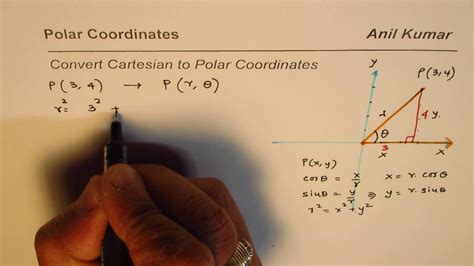 Polar Coordinates Anil Kumar
Convert Cartesian to Polar Coordinates
P(3,4) → P(r, θ)
r² = 3² +
y
P(3,4)
r
4 y.
θ
3 x
x
P(x,y)
cosθ = x/r ⇒ x = r.cosθ
sinθ = y/r ⇒ y = r.sinθ
r² = x² + y²